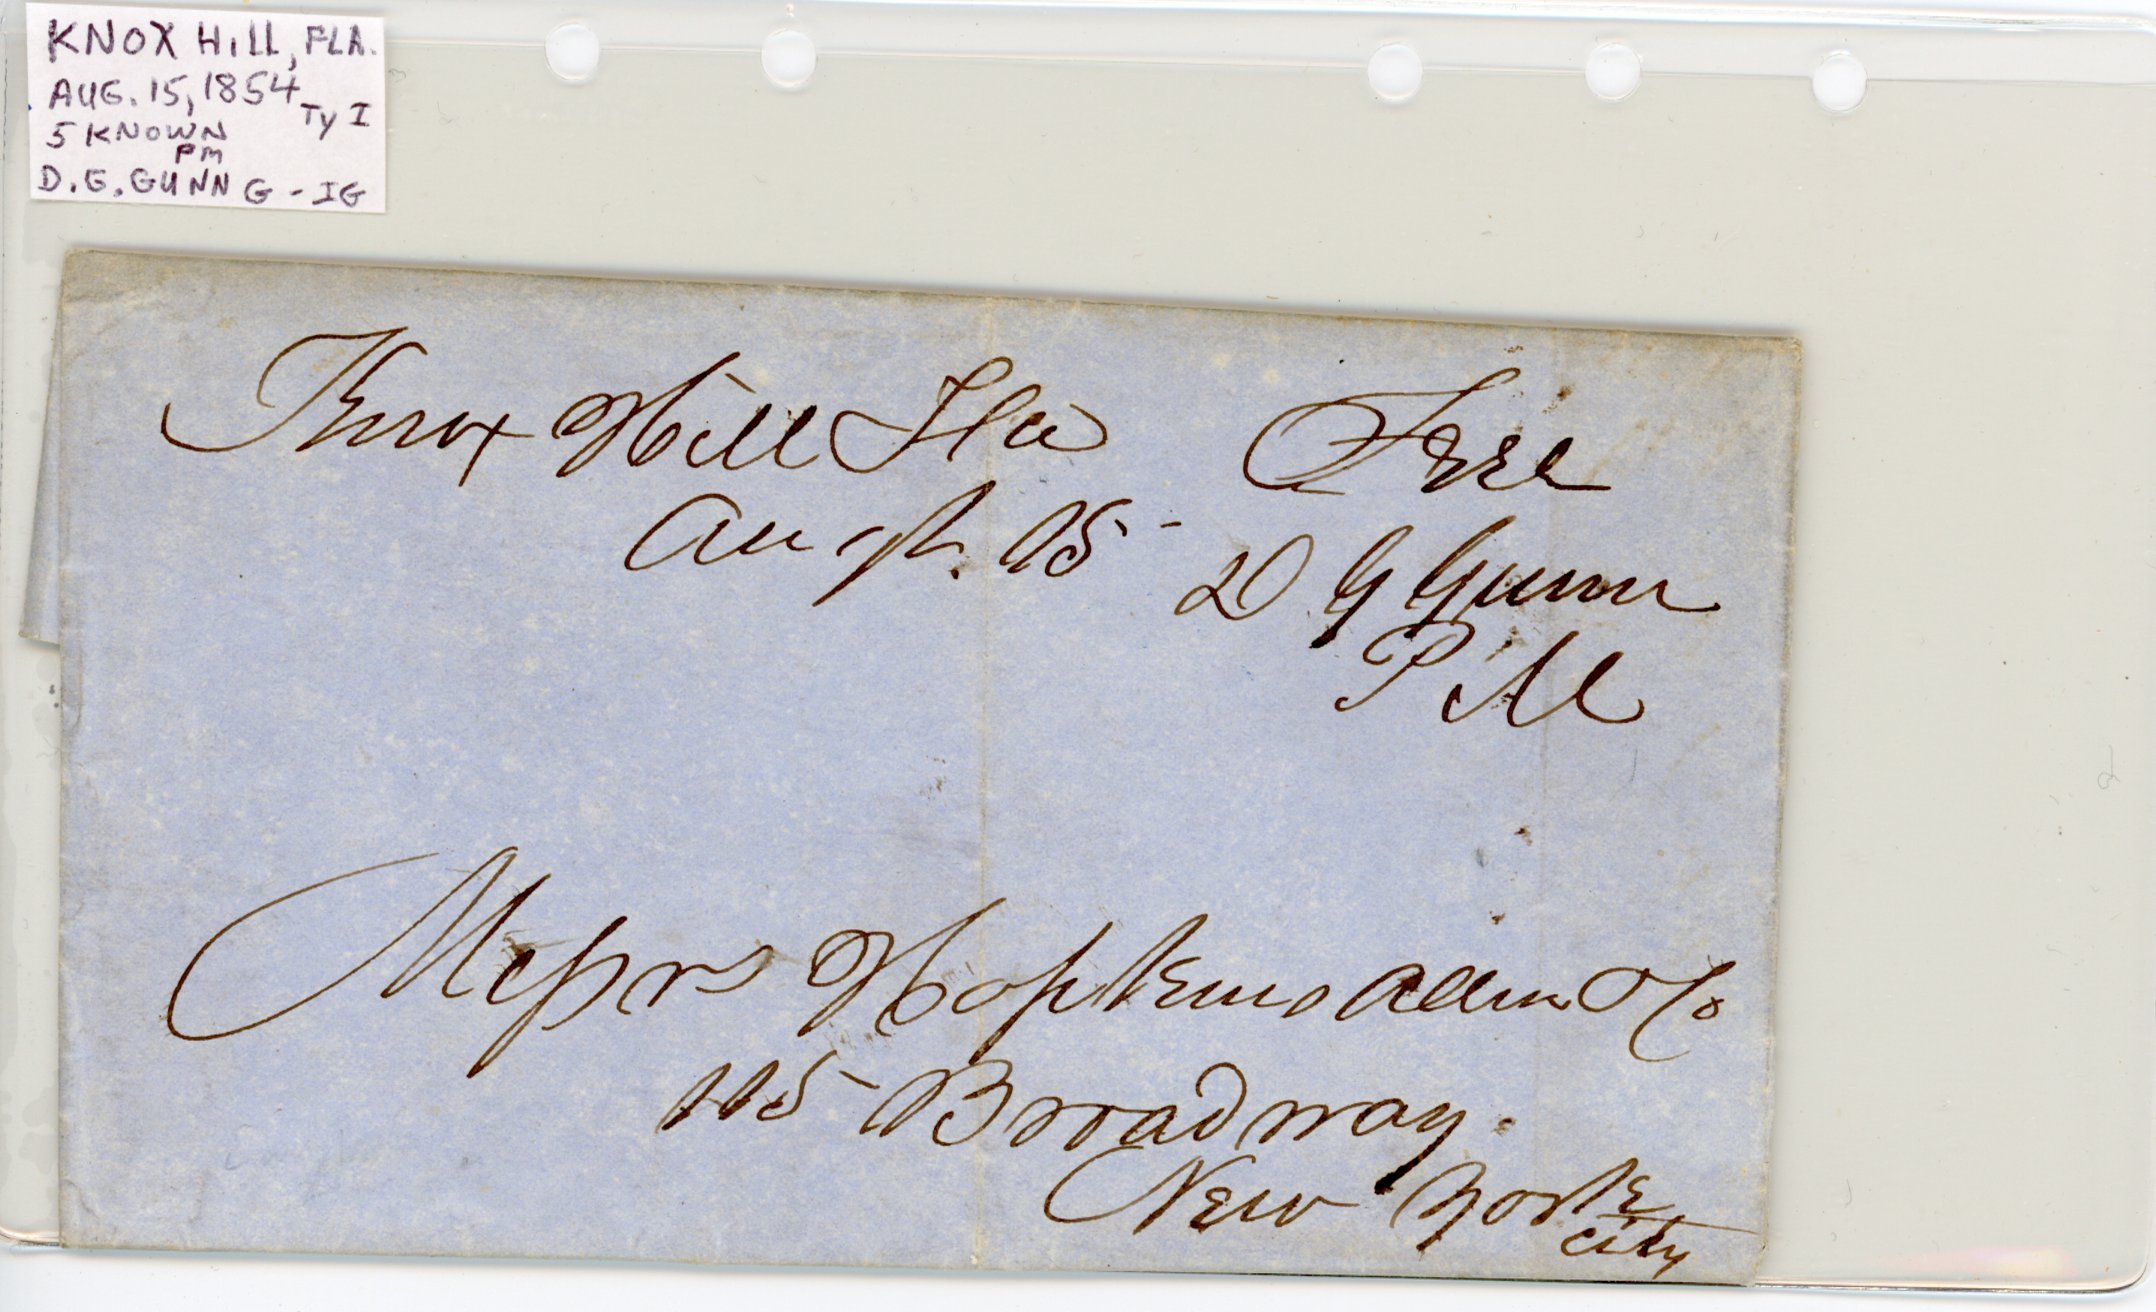 KNOX HILL, FLA.
AUG. 15, 1854
Ty I
5 KNOWN
PM
D. G. GUNN G - IG
Knox Hill Fla
Augt. 15
Free
D G Gunn
P M
Messrs Hopkins Allen & Co
115 Broadway.
New York
City